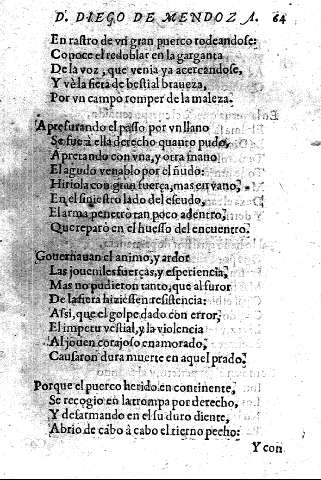 D. DIEGO DE MENDOZA. 64
En rastro de vn gran puerco rodeandose:
Conoce el redoblar en la garganta
De la voz, que venia ya acercandose,
Y vè la fiera de bestial braueza,
Por vn campo romper de la maleza.
Apresurando el passo por vn llano
Se fue à ella derecho quanto pudo,
Apretando con vna, y otra mano
El agudo venablo por el ñudo:
Hiriola con gran fuerça, mas en vano,
En el siniestro lado del escudo,
El arma penetrò tan poco adentro,
Que reparò en el huesso del encuentro.
Gouernauan el animo, y ardor
Las jouenlles fuerças, y esperiencia,
Mas no pudieron tanto, que al furor
De la fiera hiziessen resistencia:
Assi, que el golpe dado con error,
El impetu vestial, y la violencia
Al jouen corajoso enamorado,
Causaron dura muerte en aquel prado.
Porque el puerco herido en continente,
Se recogio en la trompa por derecho,
Y desarmando en el su duro diente,
Abrio de cabo à cabo el tierno pecho:
Y con